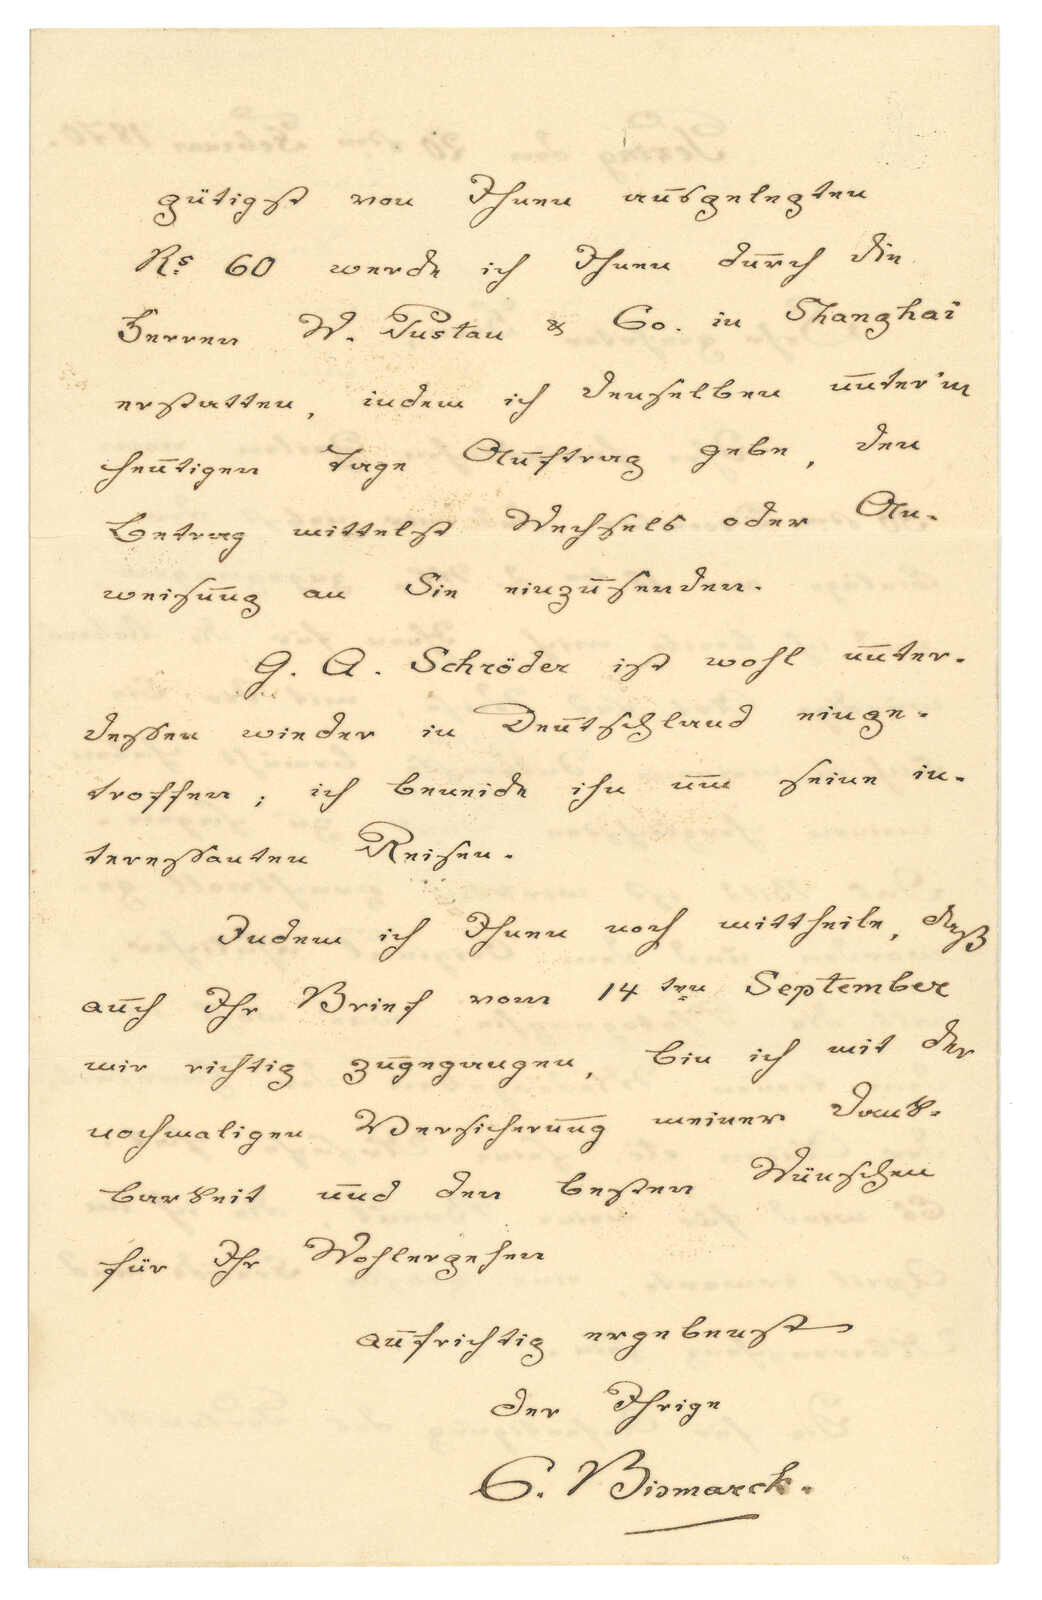 gütigst von Ihnen ausgelegten
Rs 60 werde ich Ihnen durch die
Herren W. Pustau & Co. in Shanghai
erstatten, indem ich denselben unter'm
heutigen Tage Auftrag gebe, den
Betrag mittelst Wechsels oder An-
weisung an Sie einzusenden.
G. A. Schröder ist wohl unter-
dessen wieder in Deutschland einge-
troffen; ich beneide ihn um seine in-
teressanten Reisen.
Indem ich Ihnen noch mittheile, daß
auch Ihr Brief vom 14ten September
mir richtig zugegangen, bin ich mit der
nochmaligen Versicherung meiner Dank-
barkeit und den besten Wünschen
für Ihr Wohlergehen
aufrichtig ergebenst
der Ihrige
C. Bismarck.